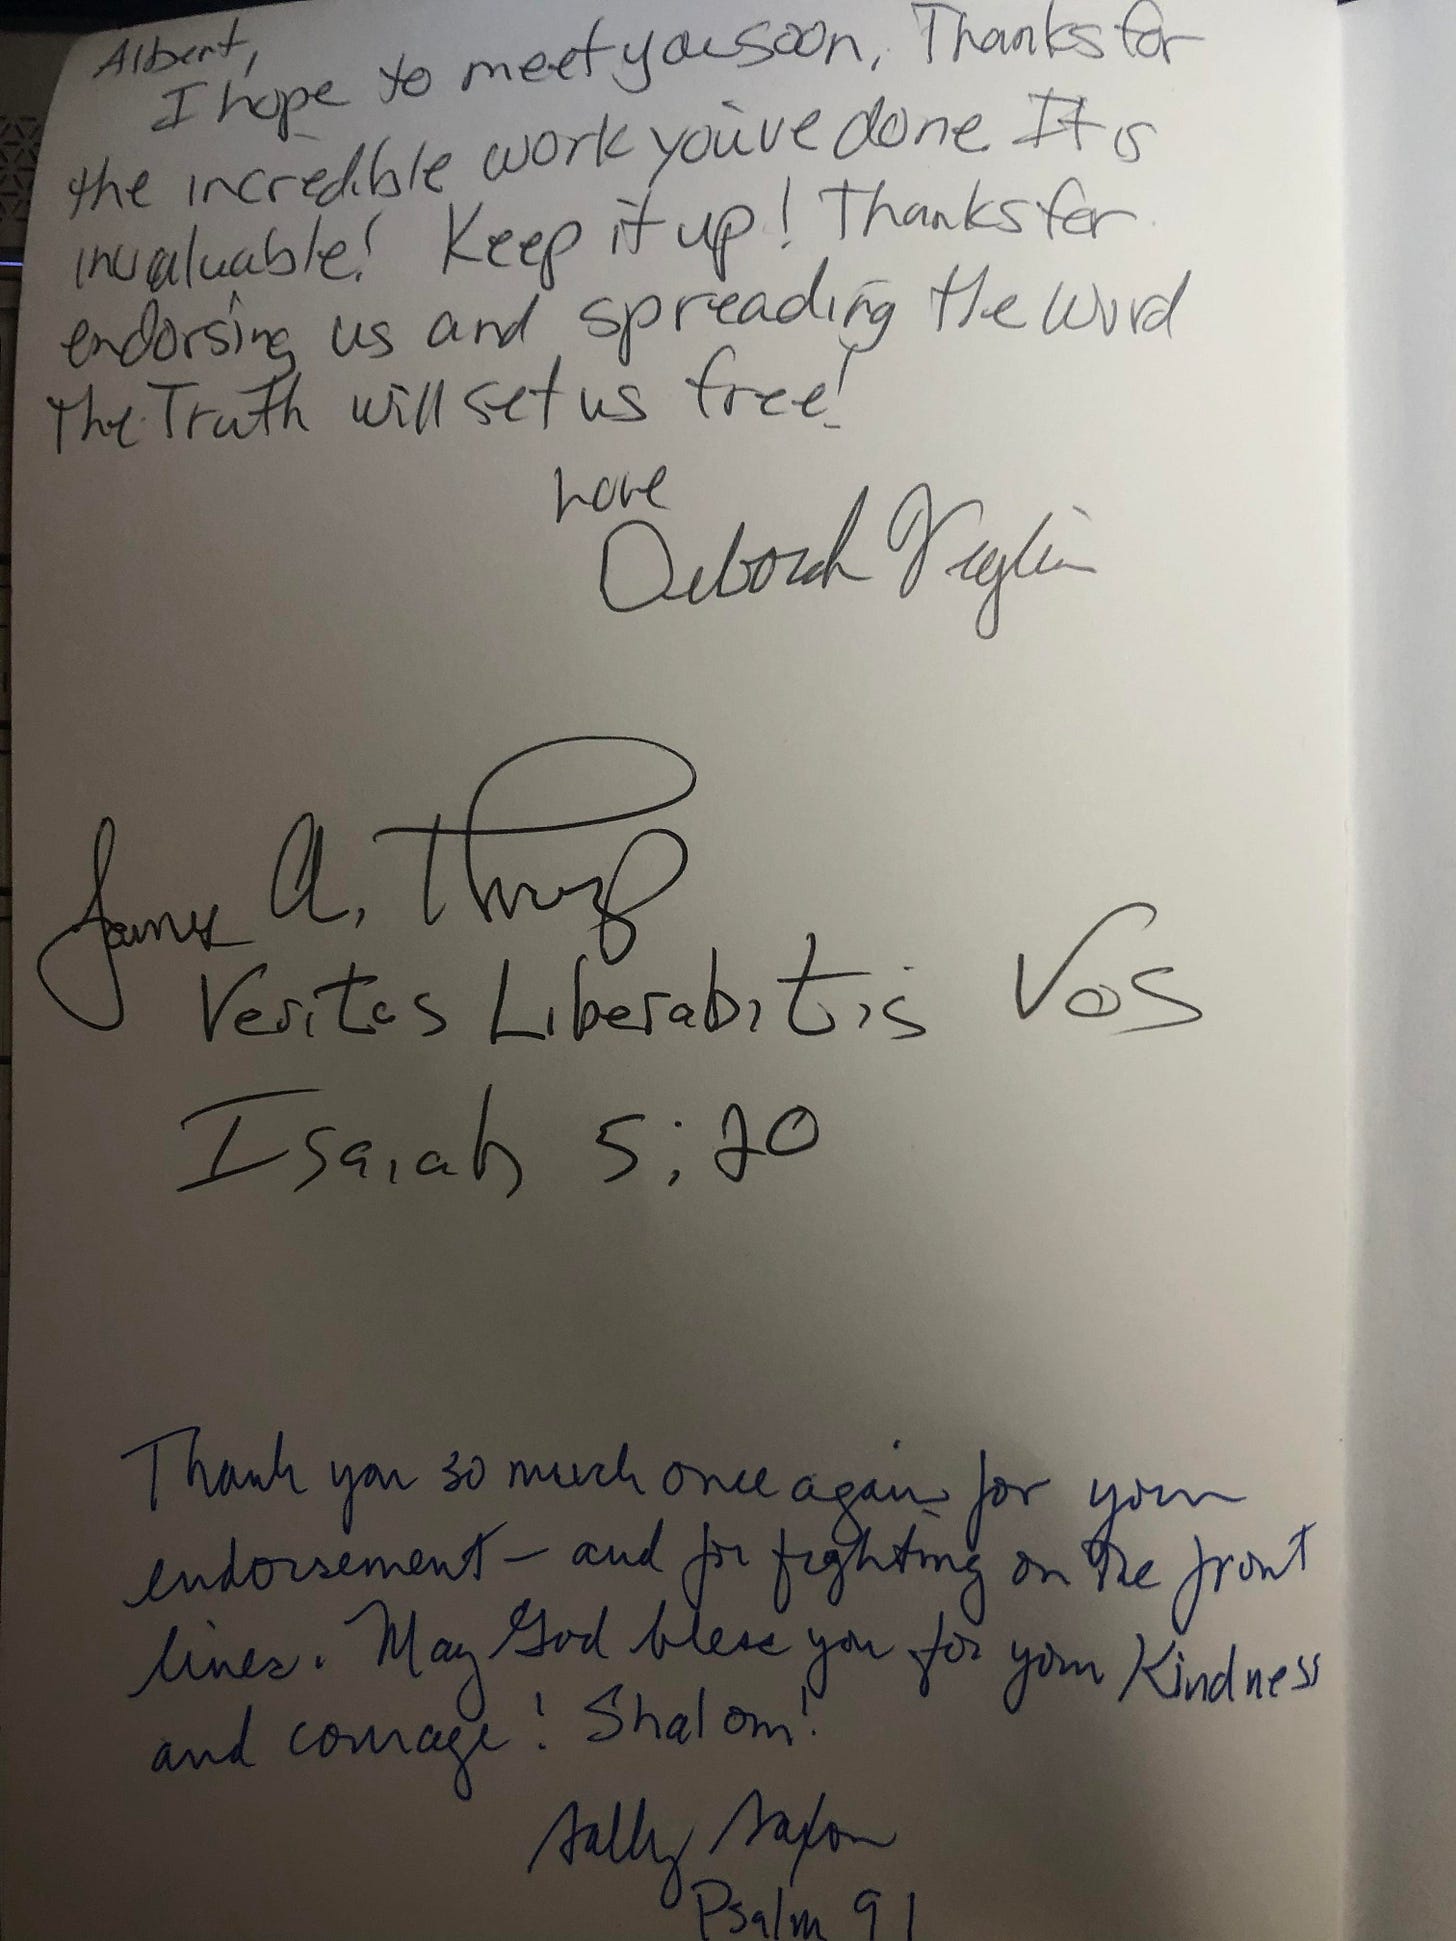 Albert,
I hope to meet you soon, Thanks for
the incredible work you've done. It is
invaluable! Keep it up! Thanks for
endorsing us and spreading the Word
The Truth will set us free!
Love
Deborah Viglione
James A. Thorp
Veritas Liberabitis Vos
Isaiah 5:20
Thank you so much once again for your
endorsement – and for fighting on the front
lines. May God bless you for your Kindness
and courage! Shalom!
Sally Saxon
Psalm 91